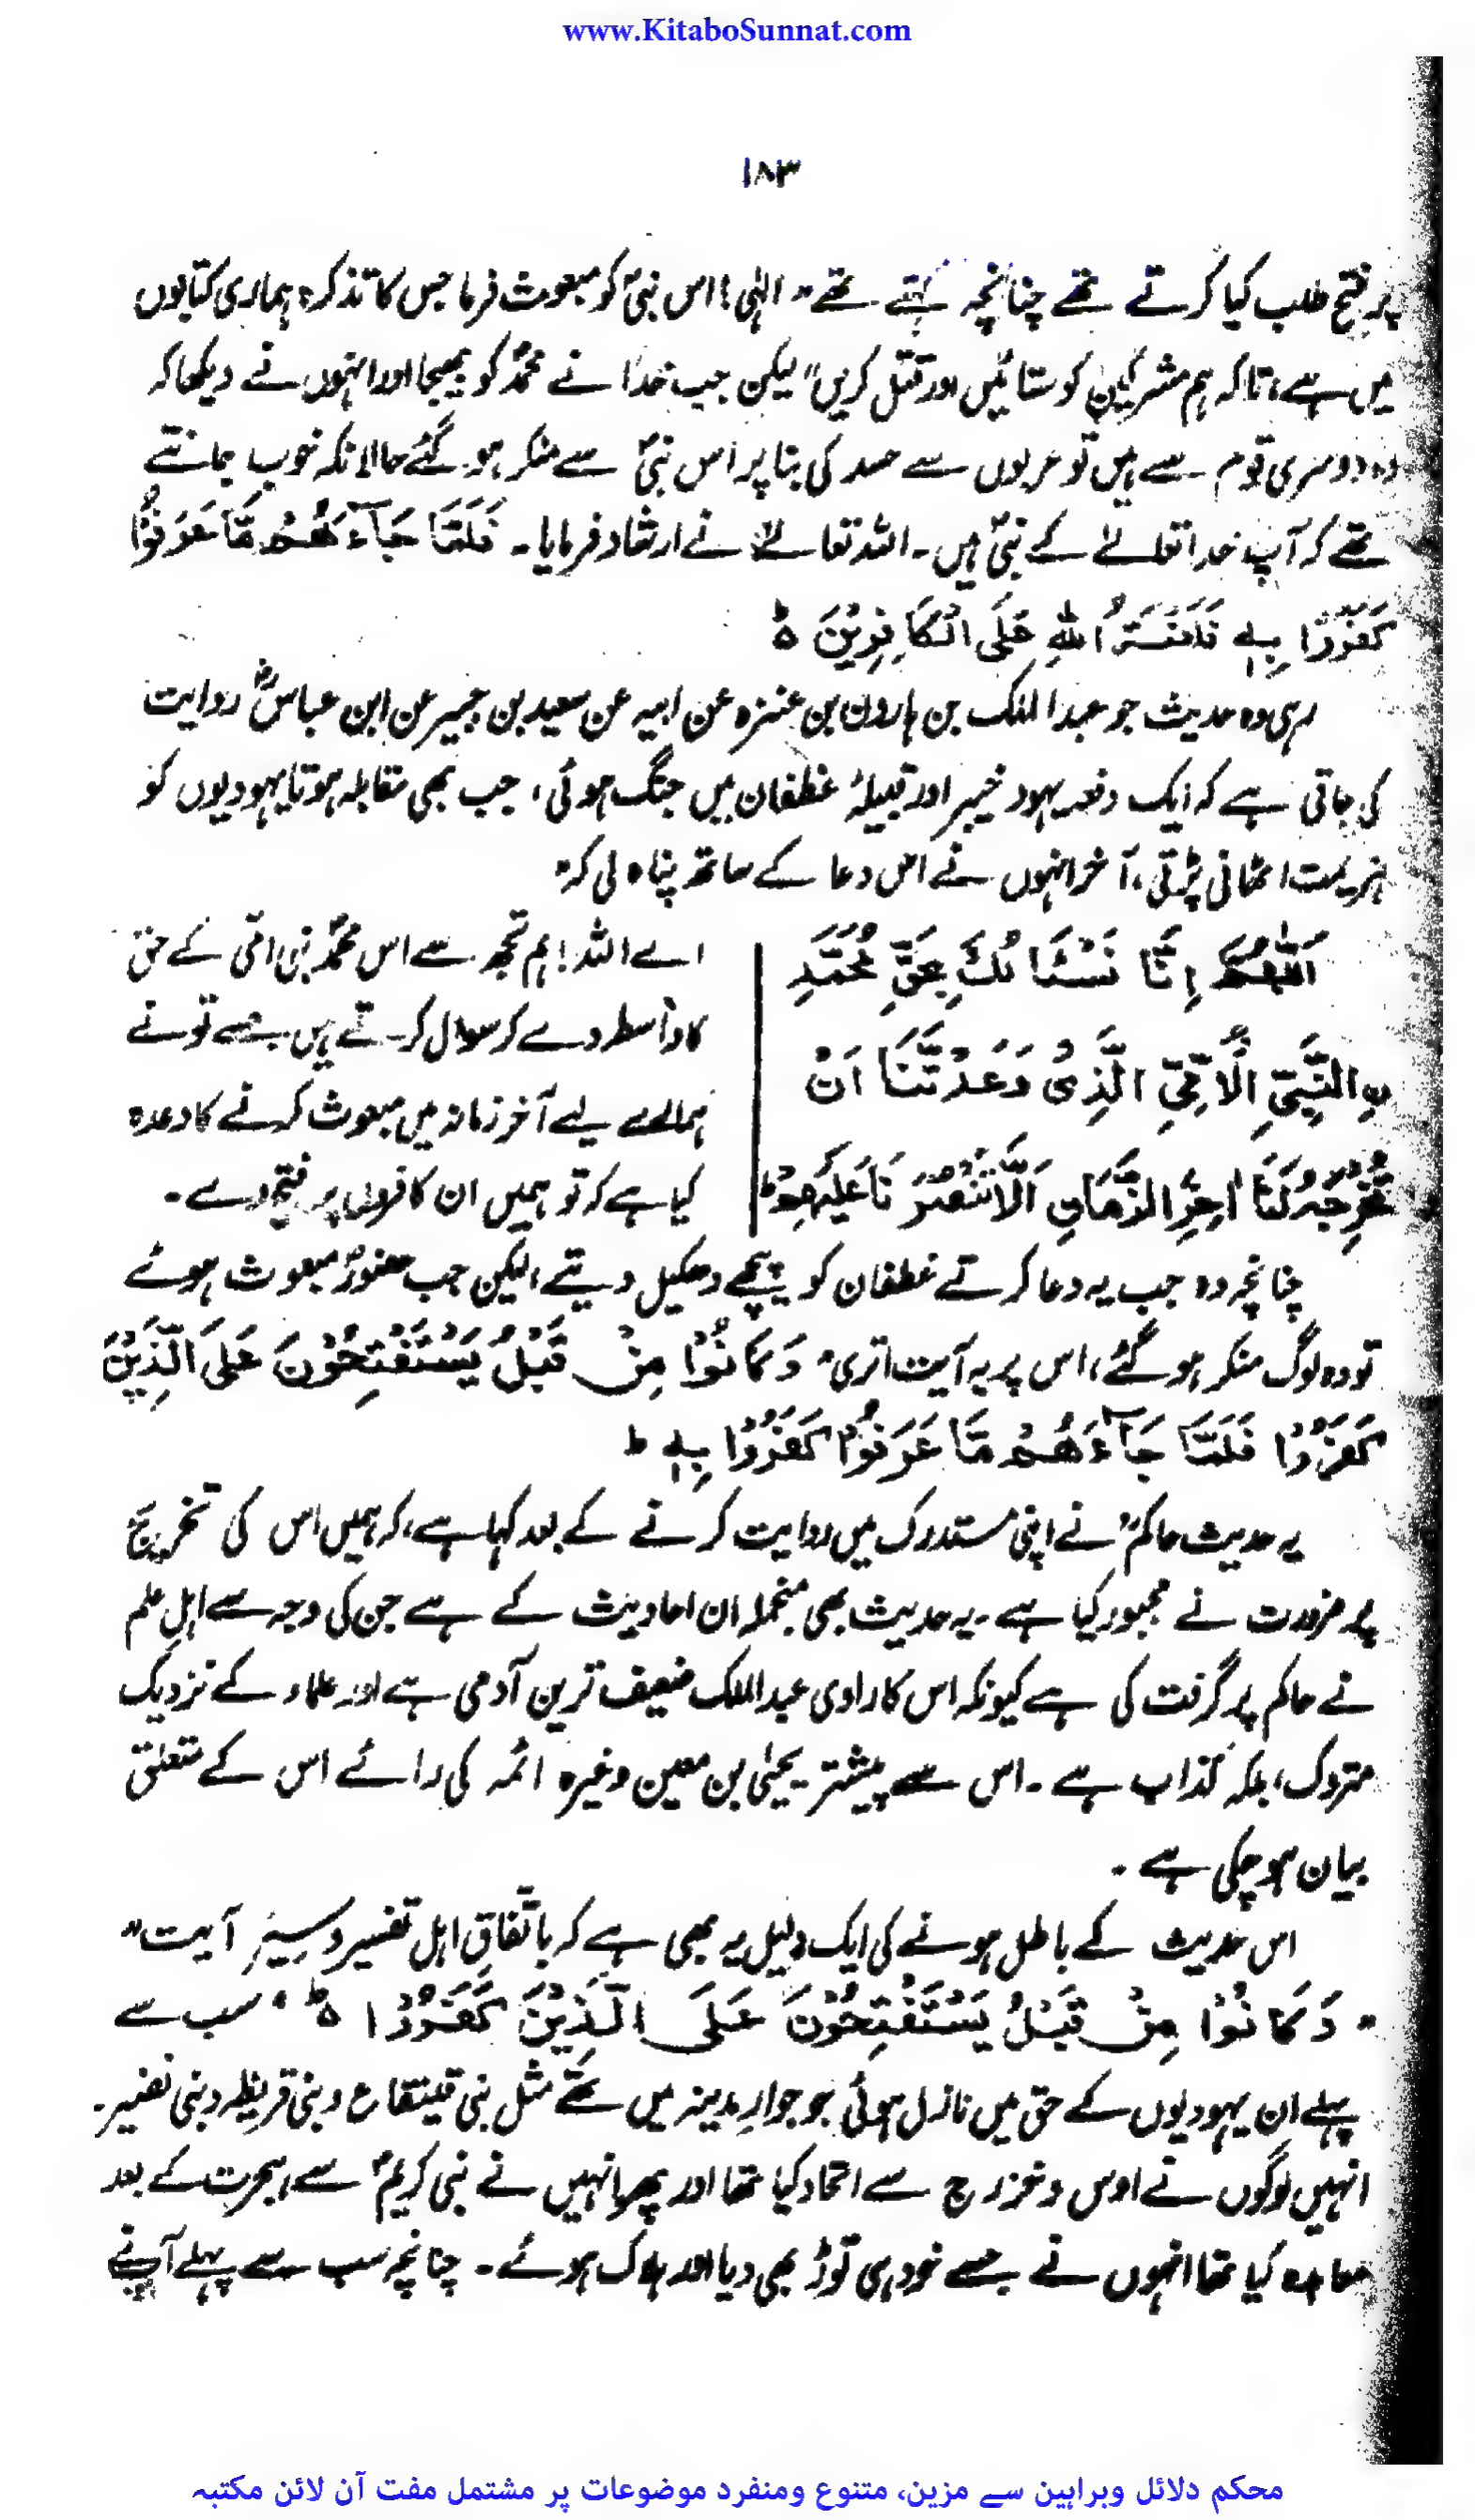 www.KitaboSunnat.com
۱۸۳
پر فتح طلب کیا کرتے تھے چنانچہ کہتے تھے " الٰہی! اس نبیؐ کو مبعوث فرما جس کا تذکرہ ہماری کتابوں
میں ہے، تاکہ ہم مشرکین کو ستائیں اور قتل کریں" لیکن جب خدا نے محمدؐ کو بھیجا اور انہوں نے دیکھا کہ
وہ دوسری قوم سے ہیں تو عربوں سے حسد کی بنا پر اس نبیؐ سے منکر ہو گئے حالانکہ خوب جانتے
تھے کہ آپ خدا تعالےٰ کے نبیؐ ہیں۔ اللہ تعالےٰ نے ارشاد فرمایا۔ فَلَمَّا جَآءَهُمْ مَّا عَرَفُوْا
كَفَرُوْا بِهٖ فَلَعْنَةُ اللّٰهِ عَلَى الْكَافِرِيْنَ ہ
رہی وہ حدیث جو عبدالملک بن ہارون بن عنترہ عن ابیہ عن سعید بن جبیر عن ابن عباسؓ روایت
کی جاتی ہے کہ ایک دفعہ یہود خیبر اور قبیلہ غطفان میں جنگ ہوئی، جب بھی مقابلہ ہوتا یہودیوں کو
ہزیمت اٹھانی پڑتی، آخر انہوں نے اس دعا کے ساتھ پناہ لی کہ "
اَللّٰهُمَّ اِنَّا نَسْئَالُكَ بِحَقِّ مُحَمَّدِ
نِ النَّبِيِّ الْاُمِّيِّ الَّذِيْ وَعَدْتَّنَا اَنْ
تُخْرِجَهُ لَنَا اٰخِرَ الزَّمَانِ اَلَّا تَنْصُرَنَا عَلَيْهِمْ ط
اے اللہ! ہم تجھ سے اس محمدؐ نبی امی کے حق
کا واسطہ دے کر سوال کرتے ہیں جسے تو نے
ہمارے لیے آخر زمانہ میں مبعوث کرنے کا وعدہ
کیا ہے کہ تو ہمیں ان کافروں پر فتح دے۔
چنانچہ وہ جب یہ دعا کرتے غطفان کو پیچھے دھکیل دیتے، لیکن جب حضورؐ مبعوث ہوئے
تو وہ لوگ منکر ہو گئے، اس پر یہ آیت اتری " وَكَانُوْا مِنْ قَبْلُ يَسْتَفْتِحُوْنَ عَلَى الَّذِيْنَ
كَفَرُوْا فَلَمَّا جَآءَهُمْ مَّا عَرَفُوْا كَفَرُوْا بِهٖ ط
یہ حدیث حاکمؒ نے اپنی مستدرک میں روایت کرنے کے بعد کہا ہے، کہ ہمیں اس کی تخریج
پر ضرورت نے مجبور کیا ہے۔ یہ حدیث بھی منجملہ ان احادیث کے ہے جن کی وجہ سے اہل علم
نے حاکم پر گرفت کی ہے کیونکہ اس کا راوی عبدالملک ضعیف ترین آدمی ہے اور علماء کے نزدیک
متروک، بلکہ کذاب ہے۔ اس سے پیشتر یحییٰ بن معین وغیرہ ائمہ کی رائے اس کے متعلق
بیان ہو چکی ہے۔
اس حدیث کے باطل ہونے کی ایک دلیل یہ بھی ہے کہ باتفاقِ اہل تفسیر و سیر آیت "
" وَكَانُوْا مِنْ قَبْلُ يَسْتَفْتِحُوْنَ عَلَى الَّذِيْنَ كَفَرُوْا ہ " سب سے
پہلے ان یہودیوں کے حق میں نازل ہوئی جو جوارِ مدینہ میں تھے مثل بنی قینقاع و بنی قریظہ و بنی نضیر۔
انہیں لوگوں نے اوس و خزرج سے اتحاد کیا تھا اور پھر انہیں نے نبی کریمؐ سے ہجرت کے بعد
معاہدہ کیا تھا انہوں نے جسے خود ہی توڑ بھی دیا اور ہلاک ہوئے۔ چنانچہ سب سے پہلے آپ نے
محکم دلائل وبراہین سے مزین، متنوع ومنفرد موضوعات پر مشتمل مفت آن لائن مکتبہ